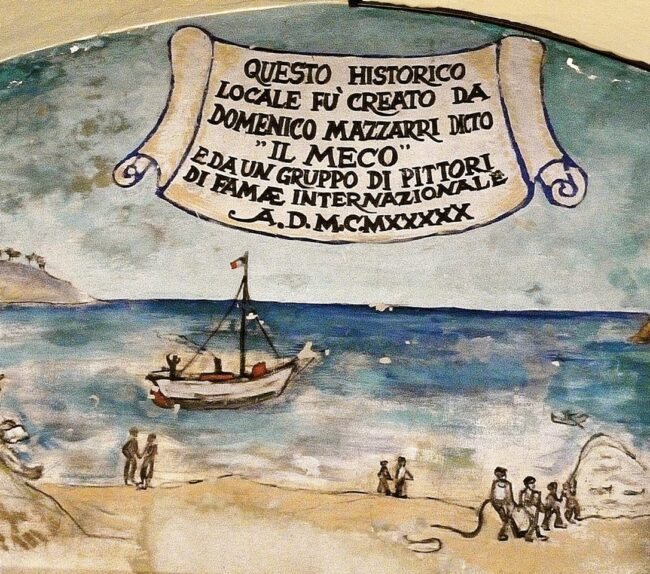 QUESTO HISTORICO
LOCALE FÙ CREATO DA
DOMENICO MAZZARRI DICTO
"IL MECO"
E DA UN GRUPPO DI PITTORI
DI FAMÆ INTERNAZIONALE
A.D.M.C.MXXXXX